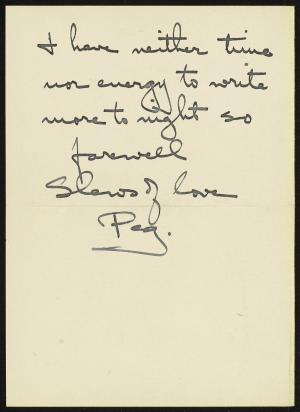 I have neither time
nor energy to write
more to night so
farewell
Slews of love
Peg.